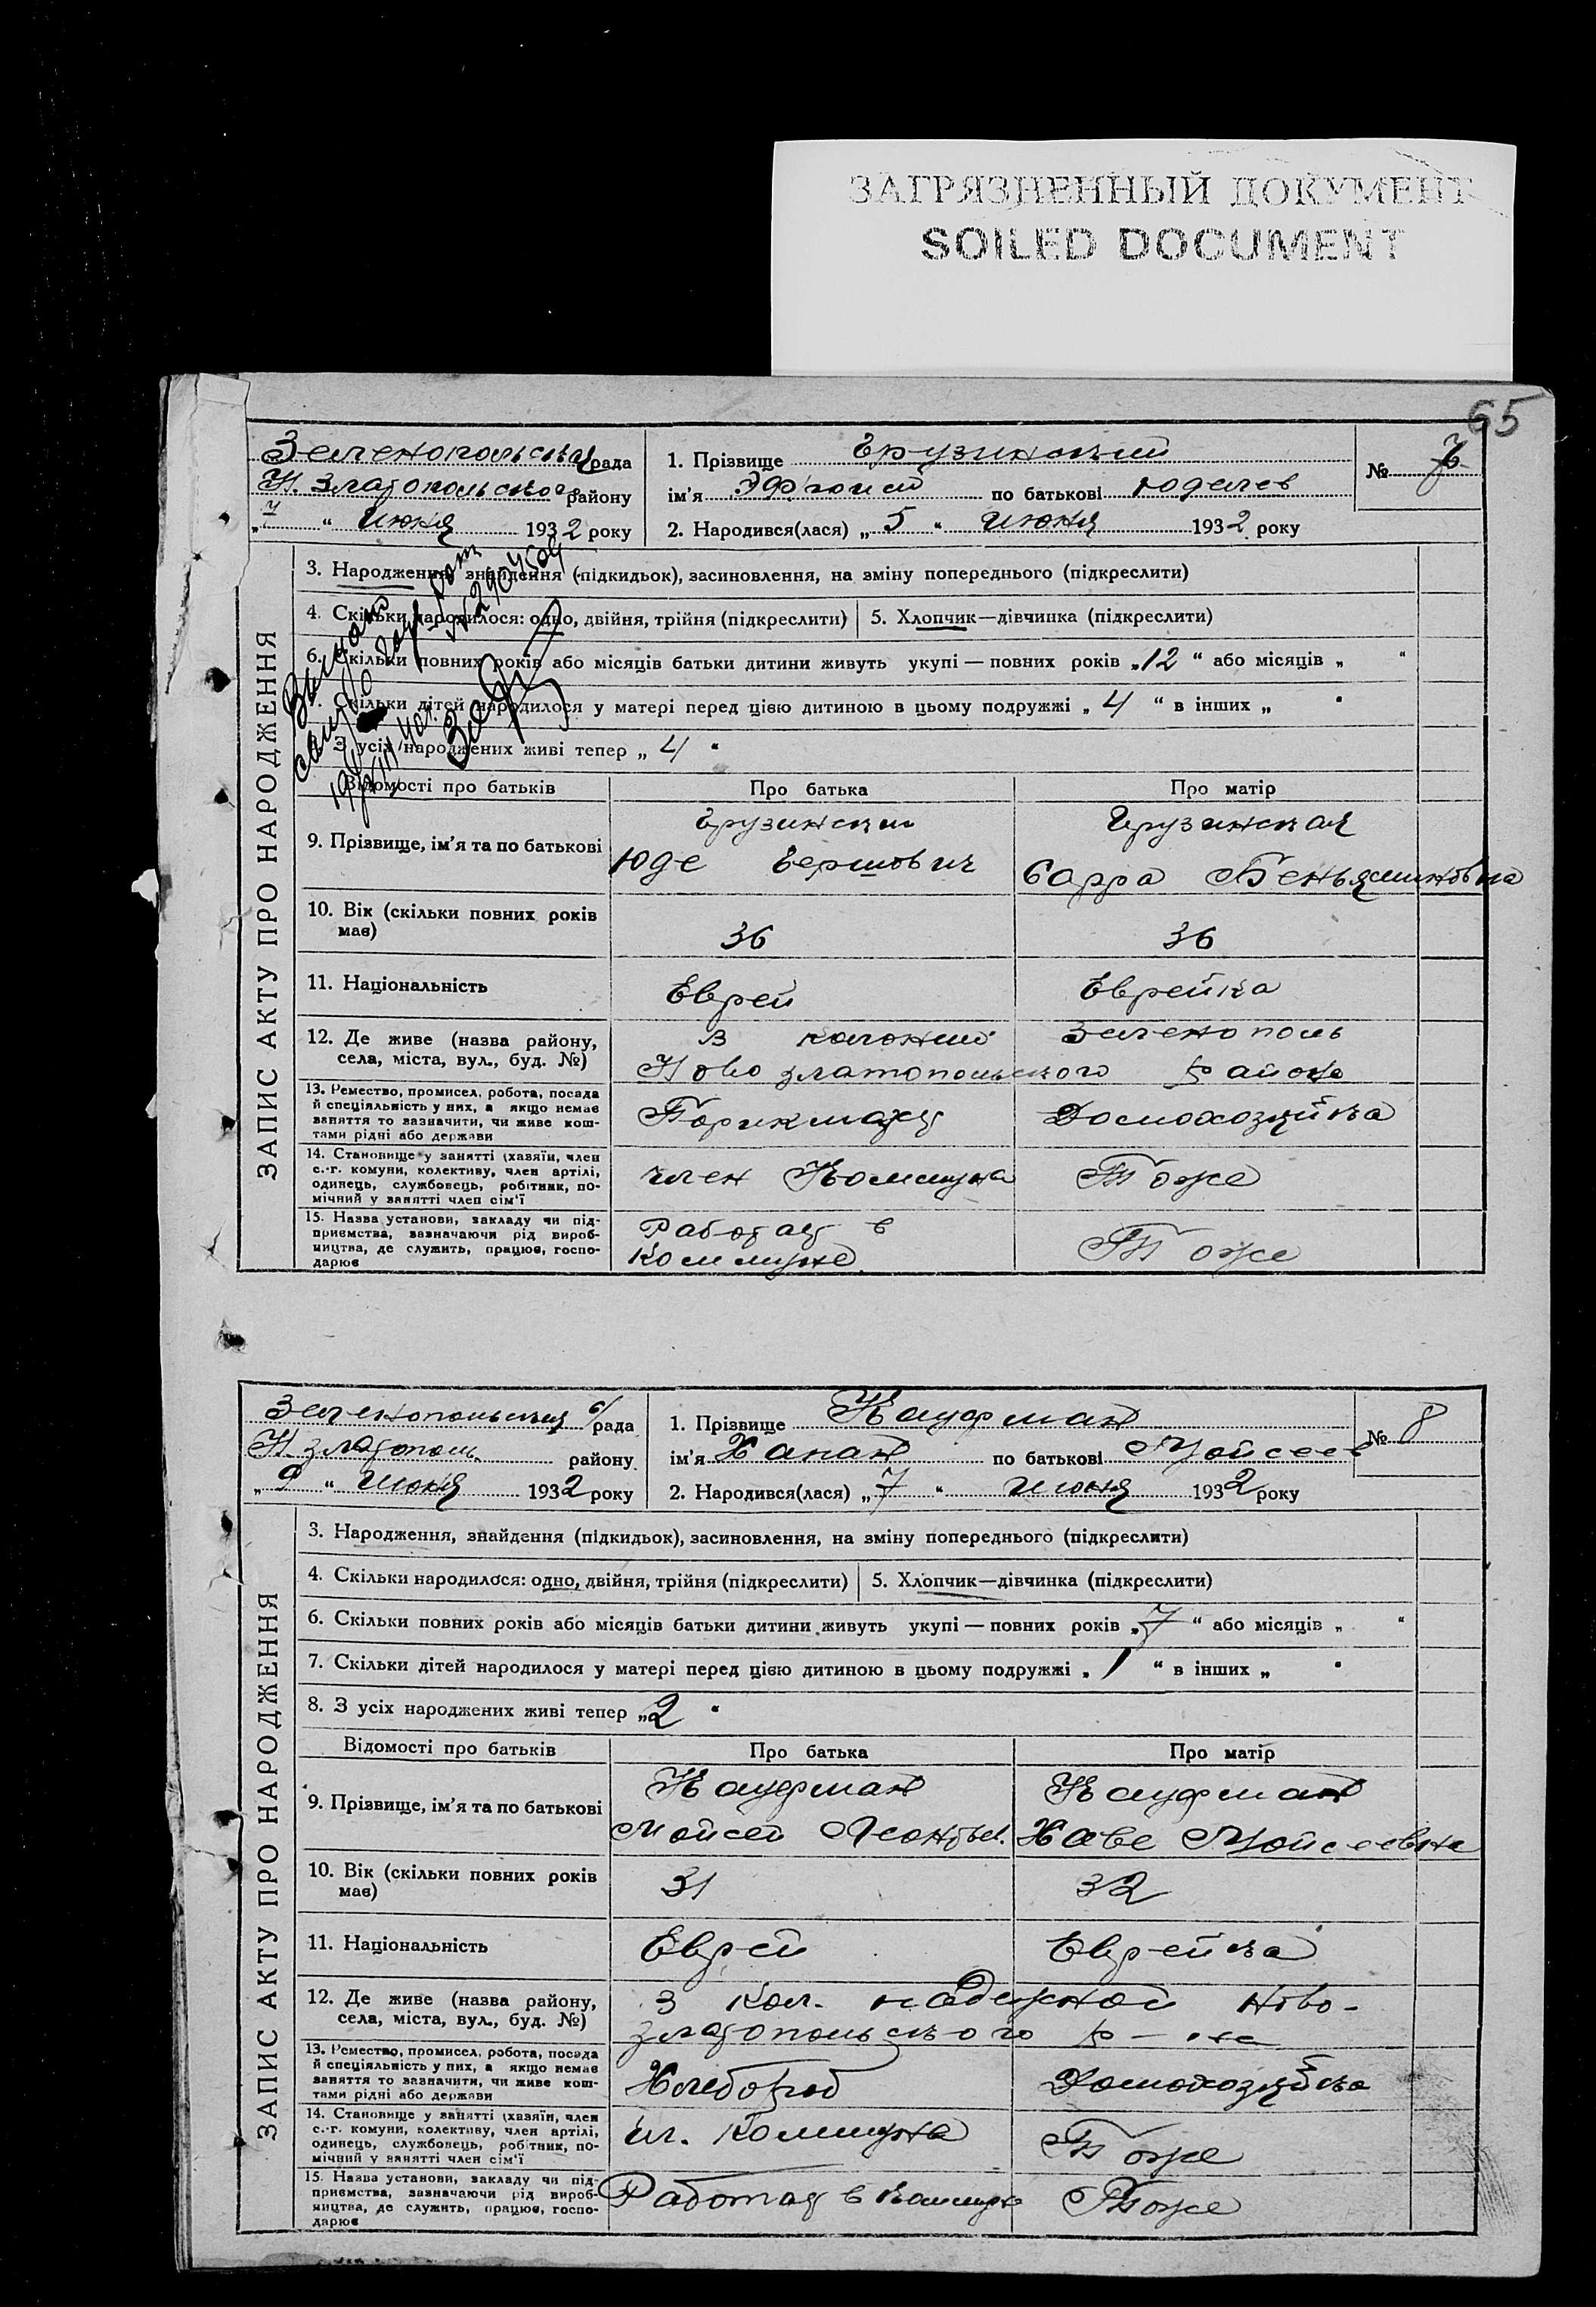 ЗАГРЯЗНЕННЫЙ ДОКУМЕНТ
SOILED DOCUMENT
65
Зеленопольская рада
Н. Златопольского району
„ 7 “ июня 1932 року
1. Прізвище Грузинский
ім’я по батькові Юделев
2. Народився(лася) „ 5 “ июня 1932 року
№ 7
ЗАПИС АКТУ ПРО НАРОДЖЕННЯ
3. Народження, знайдення (підкидьок), засиновлення, на зміну попереднього (підкреслити)
4. Скільки народилося: одно, двійня, трійня (підкреслити) 5. Хлопчик—дівчинка (підкреслити)
6. Скільки повних років або місяців батьки дитини живуть укупі — повних років „ 12 “ або місяців „ “
7. Скільки дітей народилося у матері перед цією дитиною в цьому подружжі „ 4 “ в інших „ “
З усіх народжених живі тепер „ 4 “
Відомості про батьків Про батька Про матір
9. Прізвище, ім’я та по батькові
Грузинский Грузинская
Юде Гершович Сарра Беньяминовна
10. Вік (скільки повних років має) 36 36
11. Національність Еврей Еврейка
12. Де живе (назва району, села, міста, вул., буд. №)
В колонии Зеленополь
Ново златопольского района
13. Ремество, промисел, робота, посада й спеціяльність у них, а якщо немає заняття то зазначити, чи живе коштами рідні або держави
Парикмахер Домохозяйка
14. Становище у занятті (хазяїн, член с.-г. комуни, колективу, член артілі, одинець, службовець, робітник, помічний у занятті член сім’ї
член Коммуна Тоже
15. Назва установи, закладу чи підприємства, зазначаючи рід виробництва, де служить, працює, господарює
Работая в Коммуне Тоже
Зеленопольская с/рада
Н златополь. району
„ 9 “ июня 1932 року
1. Прізвище Кауфман
ім’я Ханан по батькові Мойсеев
2. Народився(лася) „ 7 “ июня 1932 року
№ 8
ЗАПИС АКТУ ПРО НАРОДЖЕННЯ
3. Народження, знайдення (підкидьок), засиновлення, на зміну попереднього (підкреслити)
4. Скільки народилося: одно, двійня, трійня (підкреслити) 5. Хлопчик—дівчинка (підкреслити)
6. Скільки повних років або місяців батьки дитини живуть укупі — повних років „ 7 “ або місяців „ “
7. Скільки дітей народилося у матері перед цією дитиною в цьому подружжі „ 1 “ в інших „ “
8. З усіх народжених живі тепер „ 2 “
Відомості про батьків Про батька Про матір
9. Прізвище, ім’я та по батькові
Кауфман Кауфман
Мойсей Леонтьев. Хаве Мойсеевна
10. Вік (скільки повних років має) 31 32
11. Національність Еврей Еврейка
12. Де живе (назва району, села, міста, вул., буд. №)
В кол. надежной Ново-
златопольского р-на
13. Ремество, промисел, робота, посада й спеціяльність у них, а якщо немає заняття то зазначити, чи живе коштами рідні або держави
Хлебороб Домохозяйка
14. Становище у занятті (хазяїн, член с.-г. комуни, колективу, член артілі, одинець, службовець, робітник, помічний у занятті член сім’ї
чл. Коммуна Тоже
15. Назва установи, закладу чи підприємства, зазначаючи рід виробництва, де служить, працює, господарює
Работая в Коммуне Тоже